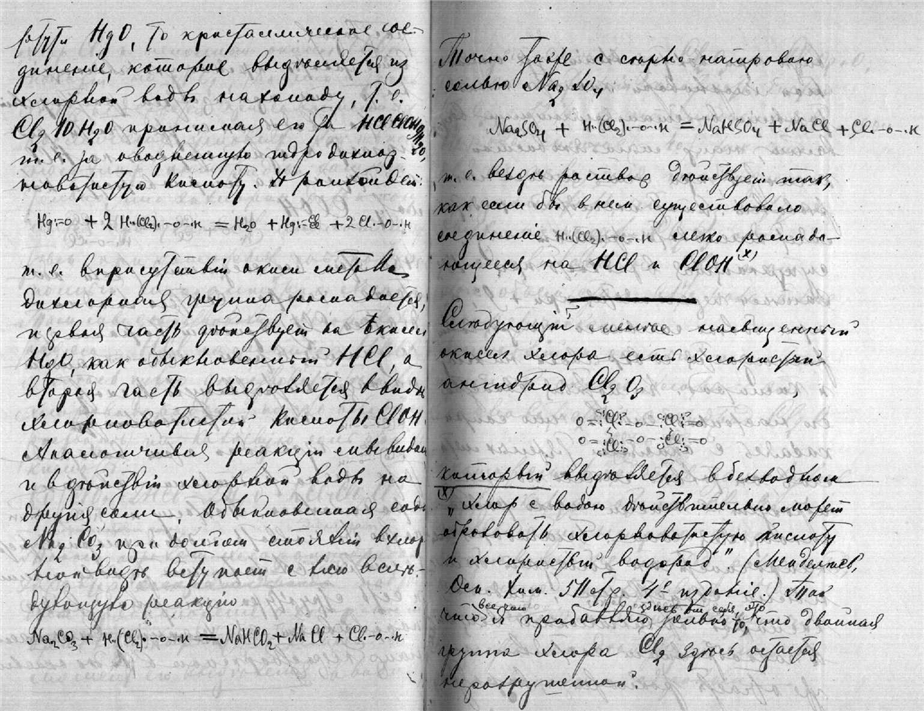 ртути HgO, то кристаллическое сое-
динение, которое выделяется из
хлорной воды на холоду, т. е.
Cl₂ 10 H₂O принимая его за
т. е. за оводненную гидродихлор-
новатистую кислоту,
Hg=O + 2 H·(Cl₂)·-O-·H = H₂O + Hg + 2 Cl·-O-·H
т. е. в присутствіи окиси металла
дихлорная группа распадается,
первая часть дѣйствует на окись
HgO, как обыкновенный HCl, а
вторая часть выдѣляется в видѣ
хлорноватистой кислоты ClOH.
Аналогичныя реакціи мы видим
и в дѣйствіи хлорной воды на
другія соли. Обыкновенная сода
Na₂CO₃ при долгом стояніи в хлор-
ной водѣ вступает с нею в слѣ-
дующую реакцію
Na₂CO₃ + H·(Cl₂)·-O-·H = NaHCO₂ + NaCl + Cl·-O-·H
Точно также с сѣрно-натровою
солью Na₂SO₄
Na₂SO₄ + H·(Cl₂)·-O-·H = NaHSO₄ + NaCl + Cl·-O-·H
т. е. вездѣ раствор дѣйствует так,
как если бы в нем существовало
соединеніе H·(Cl₂)·-O-·H легко распада-
ющееся на HCl и ClOH (x)
Слѣдующій менѣе насыщенный
окисел хлора есть хлористый
ангидрид Cl₂O₃,
который выдѣляется в безводном
x) „Хлор с водою дѣйствительно может
образовать хлорноватистую кислоту
и хлористый водород" (Менделѣев,
Осн. Хим. 511 стр. 4е изданіе.)
я прибавляю только то, что двойная
группа хлора Cl₂ здѣсь остается
неразрушенной.